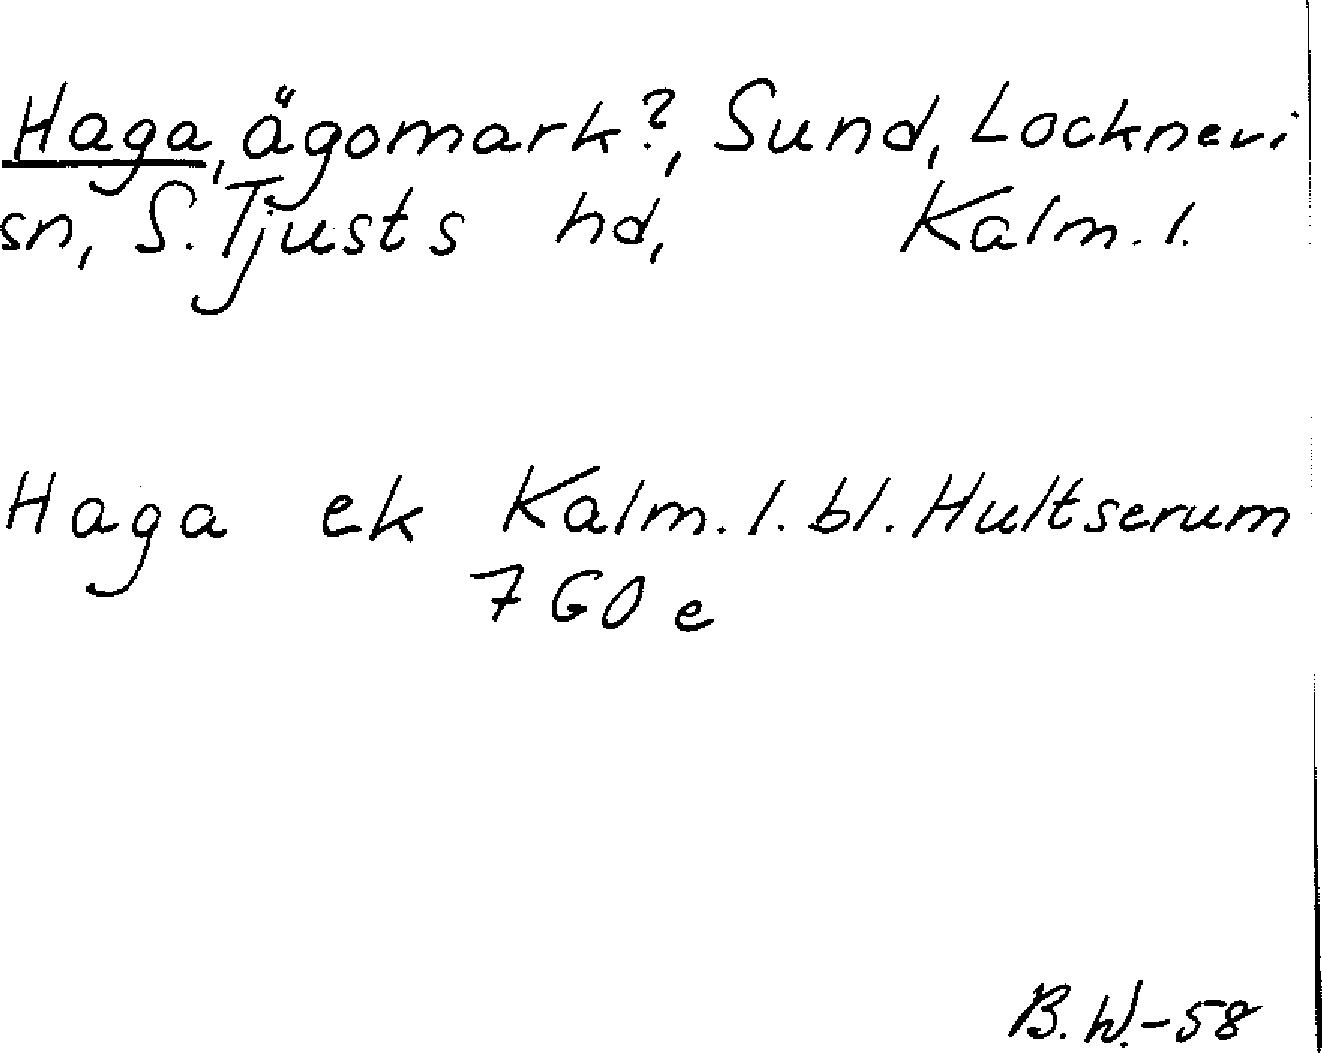 Haga, ägomark?, Sund, Locknevi
sn, S. Tjusts hd, Kalm. l.
Haga ek Kalm. l. bl. Hultserum
7 GO e
B. W. -58